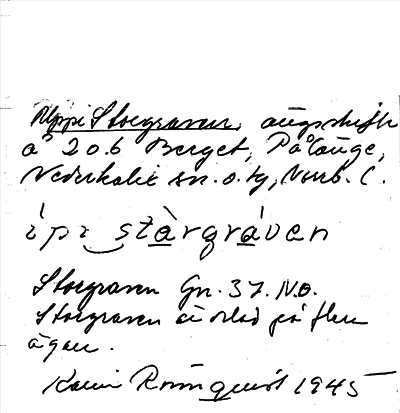 Uppi Storgraven, ängsskifte
å 2 06 Berget, Pålänge,
Nederkalix sn. o. tg, Norrb. l.
ìpi stàrgràven
Storgraven Gn. 37. N.O.
Storgraven är delad på flera
ägare.
Karin Rönnquist 1945